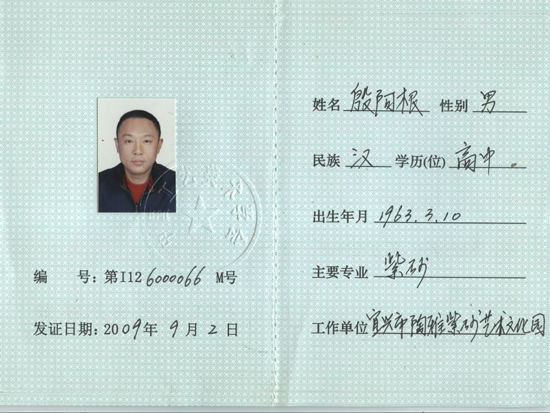 编 号: 第I126000066 M号
发证日期: 2009年9月2日
姓名 殷阿根 性别 男
民族 汉 学历(位) 高中
出生年月 1963.3.10
主要专业 紫砂
工作单位 宜兴市陶雅紫砂艺术文化园